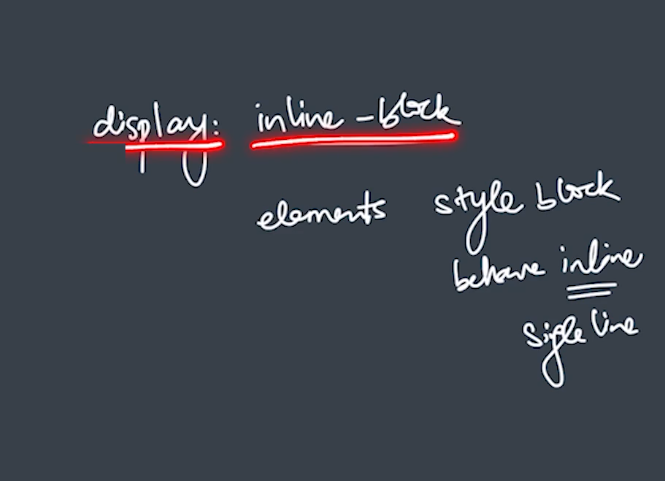 display: inline-block
elements style block
behave inline
sigle line